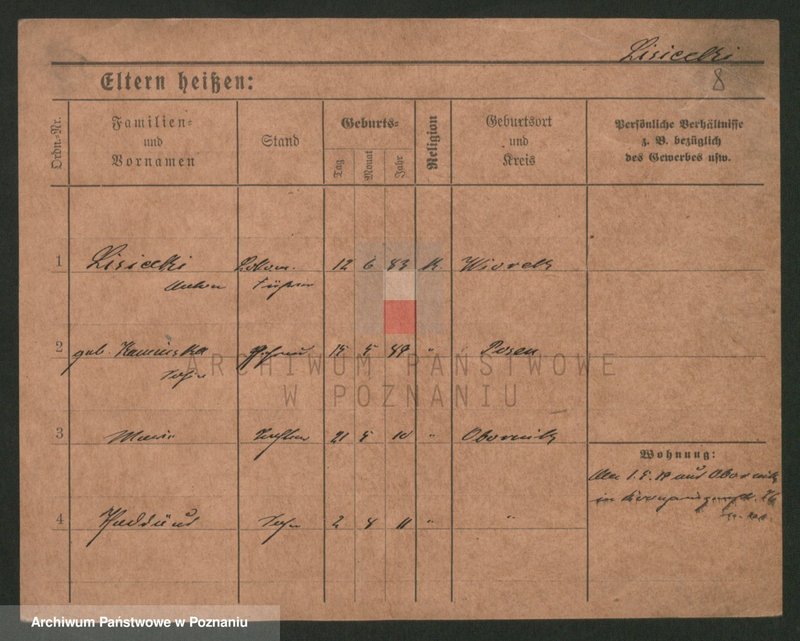 Lisiecki
8
Eltern heißen:
Ordn.-Nr.
Familien-
und
Vornamen
Stand
Geburts-
Tag
Monat
Jahr
Religion
Geburtsort
und
Kreis
Persönliche Verhältnisse
z. B. bezüglich
des Gewerbes usw.
1 Lisiecki Lokom. 12 6 83 k Wiorek
Anton
2 geb. Kaminska 5 " Posen
3 Maria Tochter 21 5 10 " Obornik
4 Sohn 2 4 11 " "
Wohnung:
aus Obornik
in
ARCHIWUM PAŃSTWOWE
W POZNANIU
Archiwum Państwowe w Poznaniu